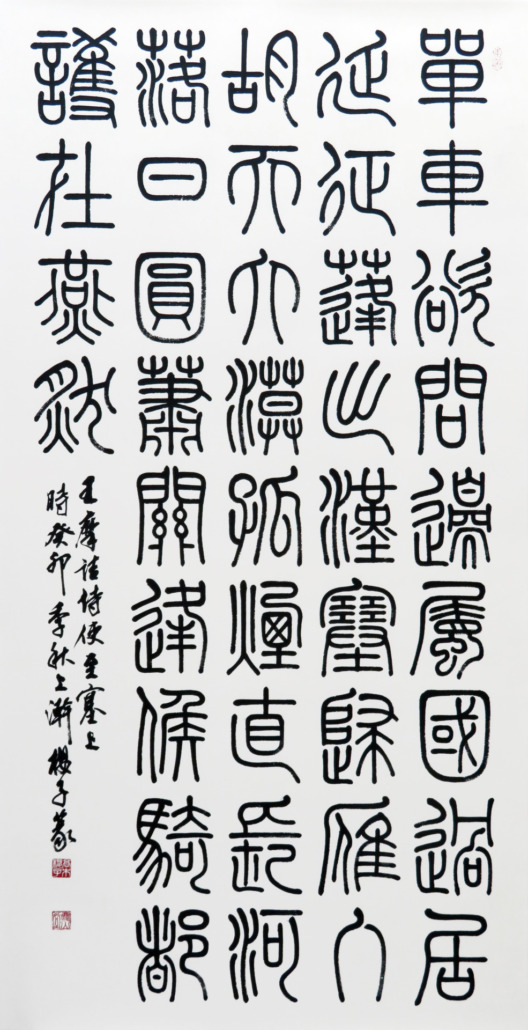 單車欲問邊屬國過居
延征蓬出漢塞歸雁入
胡天大漠孤煙直長河
落日圓蕭關逢候騎都
護在燕然
王摩詰詩使至塞上
時癸卯季秋上澣櫻子篆